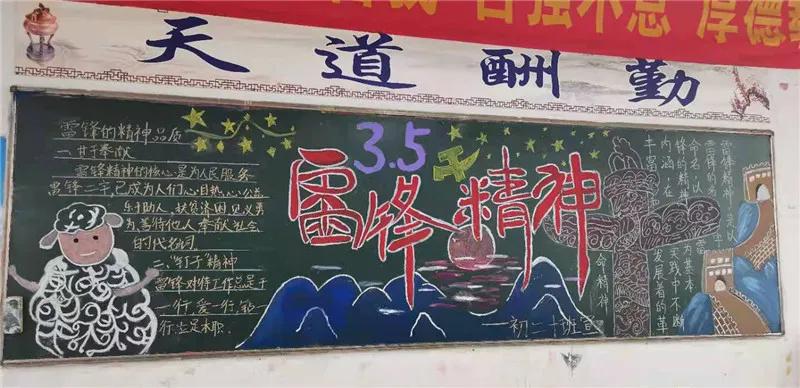 自强不息 厚德
天道酬勤
雷锋的精神品质
一、甘于奉献
雷锋精神的核心是为人民服务
雷锋二字,已成为人们心目热心公益
乐于助人、扶贫济困、见义勇
为、善待他人奉献社会
的代名词
二、“钉子”精神
雷锋对待工作总是干
一行,爱一行,钻
行立足本职.
3.5
雷锋精神
一初二十班宣
雷锋精神,是以
雷锋的
命名,以雷
锋的精神为基本
内涵,在实践中不断
丰富发展着的革
命精神